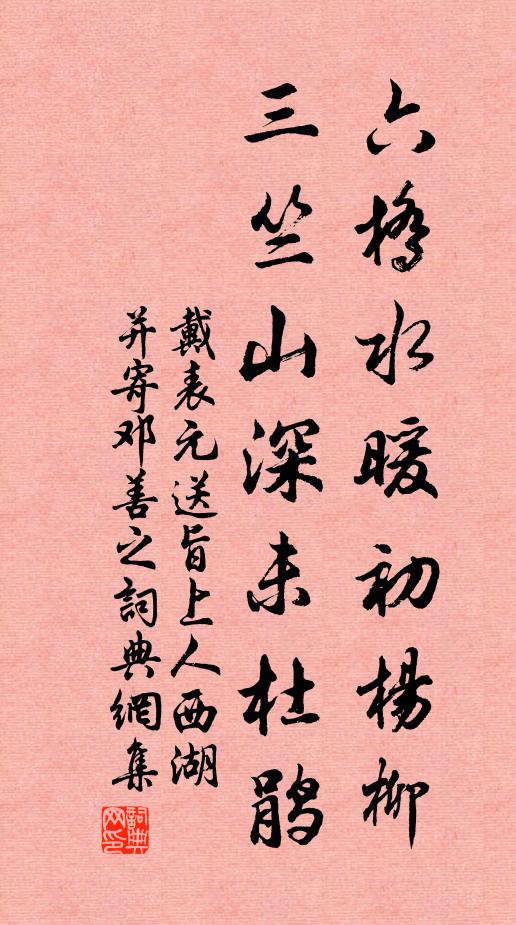 六橋水暖初楊柳
三竺山深未杜鹃
戴表元送旨上人西湖
并寄邓善之詞典網集
詞典网印